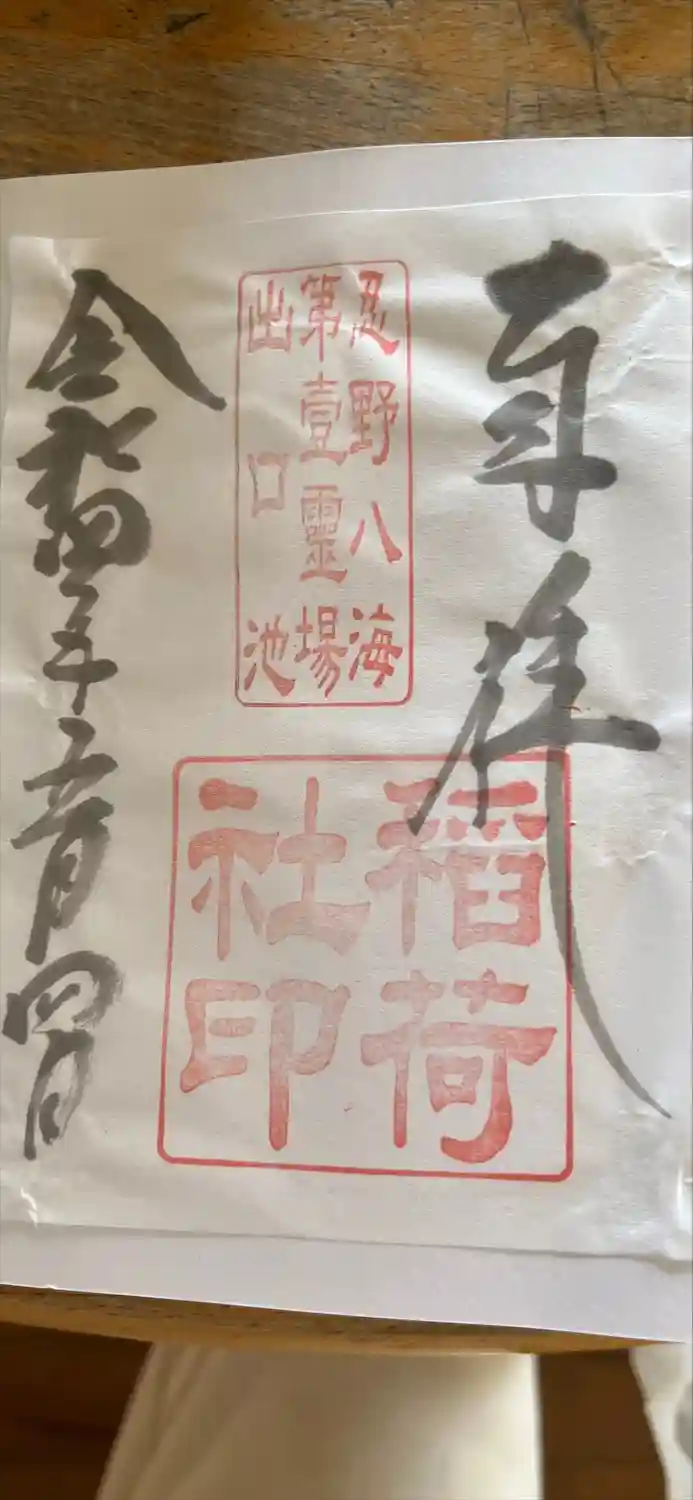 奉拝
忍野八海
第壹靈場
出口池
稲荷
社印
令和四年五月四日